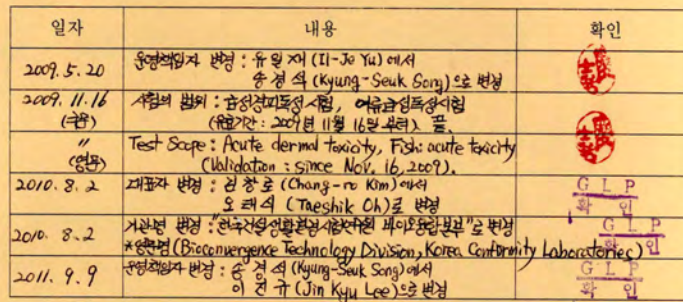 일자 내용 확인
2009.5.20 운영책임자 변경 : 유일재 (Il-Je Yu) 에서
송경석 (Kyung-Seuk Song) 으로 변경
2009.11.16 시험의 범위 : 급성경피독성시험, 어류급성독성시험
(국문) (유효기간 : 2009년 11월 16일 부터). 끝.
〃 Test Scope : Acute dermal toxicity, Fish: acute toxicity
(영문) (Validation : since Nov. 16, 2009).
2010.8.2 대표자 변경 : 김창로 (Chang-ro Kim) 에서
오태식 (Taeshik Oh)로 변경
GLP
확인
2010.8.2 기관명 변경 : "한국건설생활환경시험연구원 바이오융합본부"로 변경
*영문명 (Bioconvergence Technology Division, Korea Conformity Laboratories)
GLP
확인
2011.9.9 운영책임자 변경 : 송경석 (Kyung-Seuk Song) 에서
이진규 (Jin Kyu Lee) 으로 변경
GLP
확인